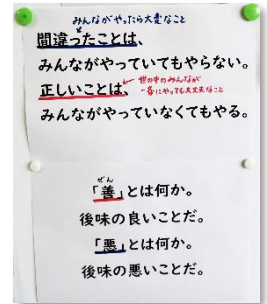 みんながやったら大変なこと
間違ったことは、
みんながやっていてもやらない。
正しいことは、
世の中のみんなが
一斉にやっても大丈夫なこと
みんながやっていなくてもやる。
ぜん
「善」とは何か。
後味の良いことだ。
「悪」とは何か。
後味の悪いことだ。